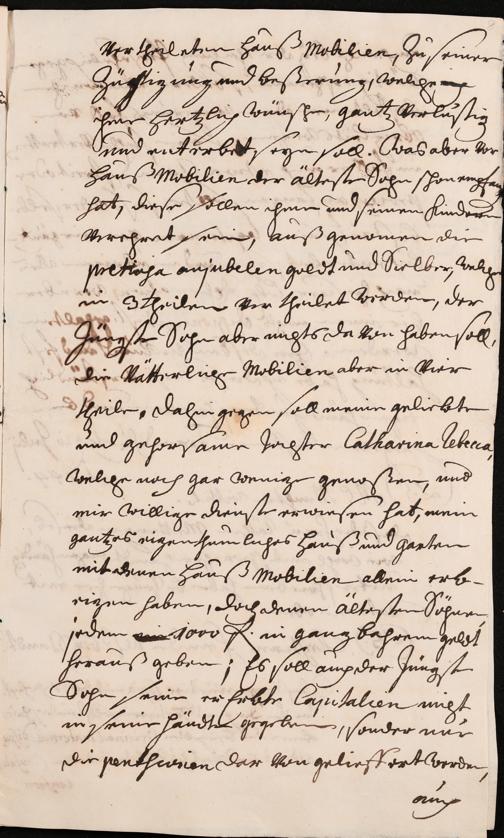 vertheileten Hauß Mobilien, zu seiner
Züchtigung und beßerung, welche
ihme hertzlich wünsche, gantz verlustig
und enterbet seyn soll. Was aber vor
Hauß Mobilien der älteste Sohn schon empfangen
hat, diese sollen ihme und seinen Kindern
verehret sein, außgenomen die
pretiosa an jubelen goldt und Sielber, welche
in 3 theilen vertheilet werden, der
Jüngste Sohn aber nichts davon haben soll,
die Vätterliche Mobilien aber in vier
theile. dahingegen soll meine geliebte
und gehorsame tochter Catharina Rebecca,
welche noch gar wenig genoßen, und
mir willige dienste erwiesen hat, mein
gantzes eigenthumliches Hauß und garten
mit denen Hauß Mobilien allein erb-
eigen haben, doch denen ältesten Söhnen
jedem 1000 f. in gantz bahrem geldt
herauß geben; Es soll auch der Jüngste
Sohn seine ererbte Capitalien nicht
in seine händte gegeben, sonder nur
die penthionen darvon geliefert werden,
auch